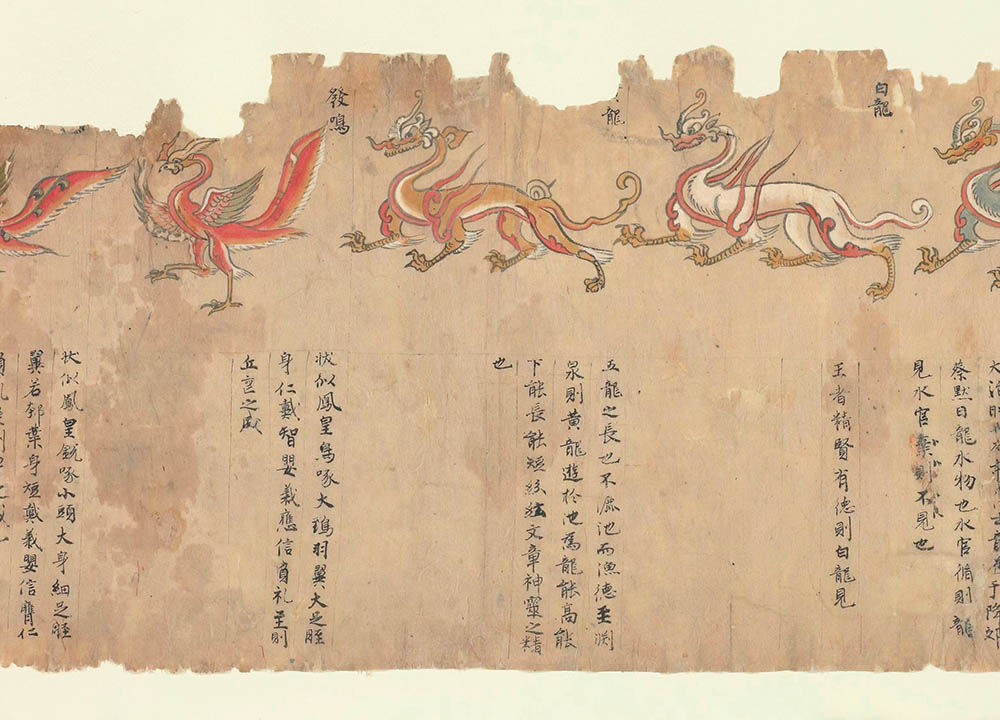 蔡默曰龍水物也水官循則龍
見水官棄則不見也
白龍
王者精賢有德則白龍見
龍
五龍之長也不漉池而漁德至淵
泉則黃龍遊於池焉龍能高能
下能長能短 文章神靈之精
也
發鳴
狀似鳳皇鳥啄大 羽翼大足脛
身仁戴智嬰義應信負礼至則
丘 之感
狀似鳳皇銳啄小頭大身細足脛
翼若 葉身短戴義嬰信膺仁